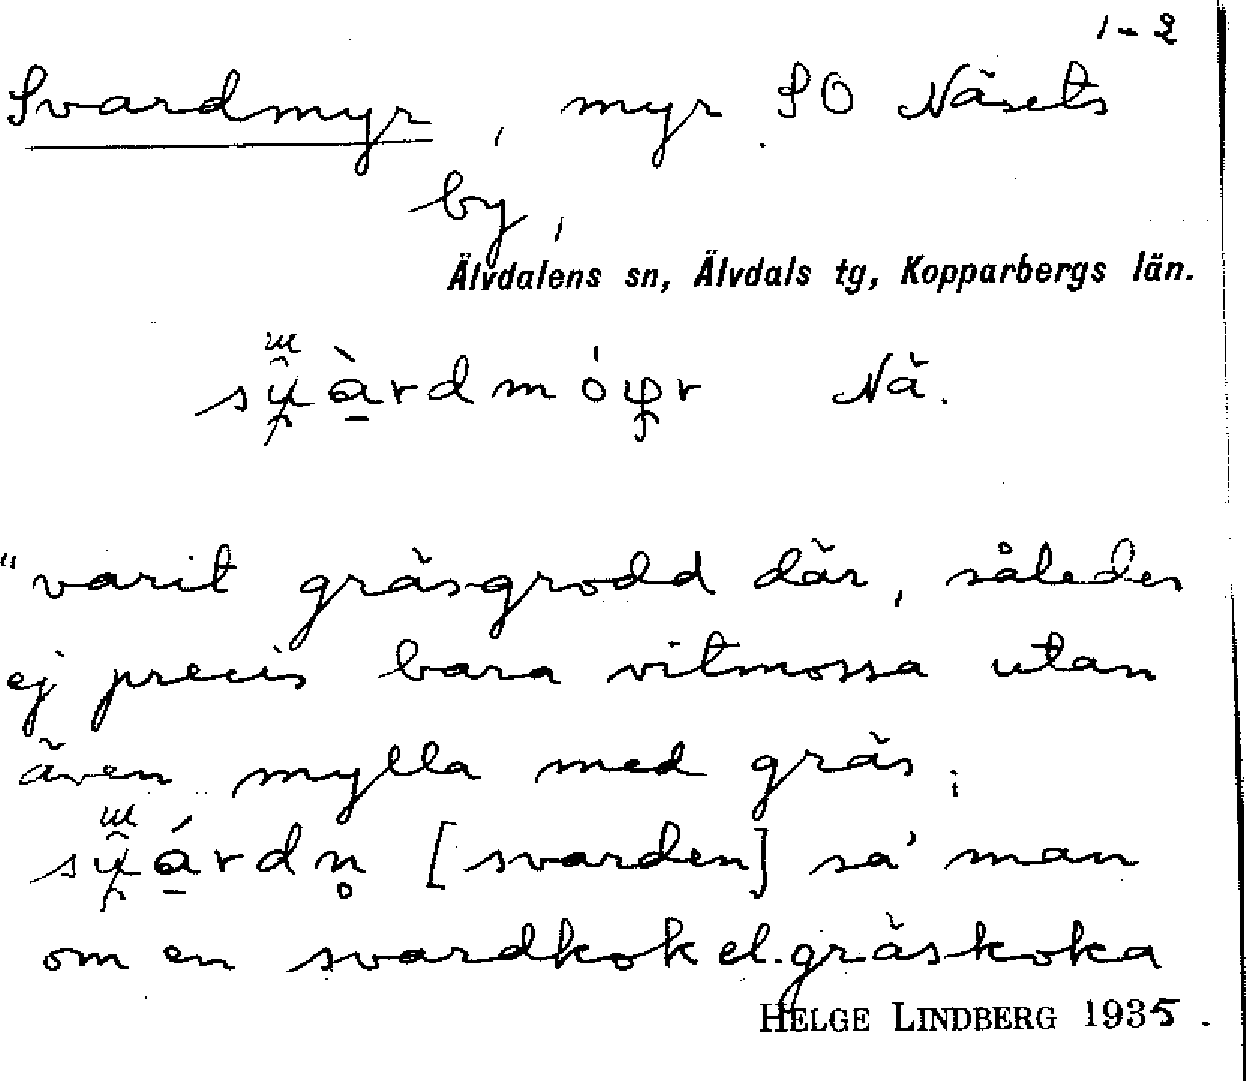 1-2
Svardmyr, myr SO Näsets
by,
Älvdalens sn, Älvdals tg, Kopparbergs län.
Nä.
"varit gräsgrodd där, således
ej precis bara vitmossa utan
även mylla med gräs,
[svarden] sa' man
om en svardkok el. gräskoka
HELGE LINDBERG 1935.